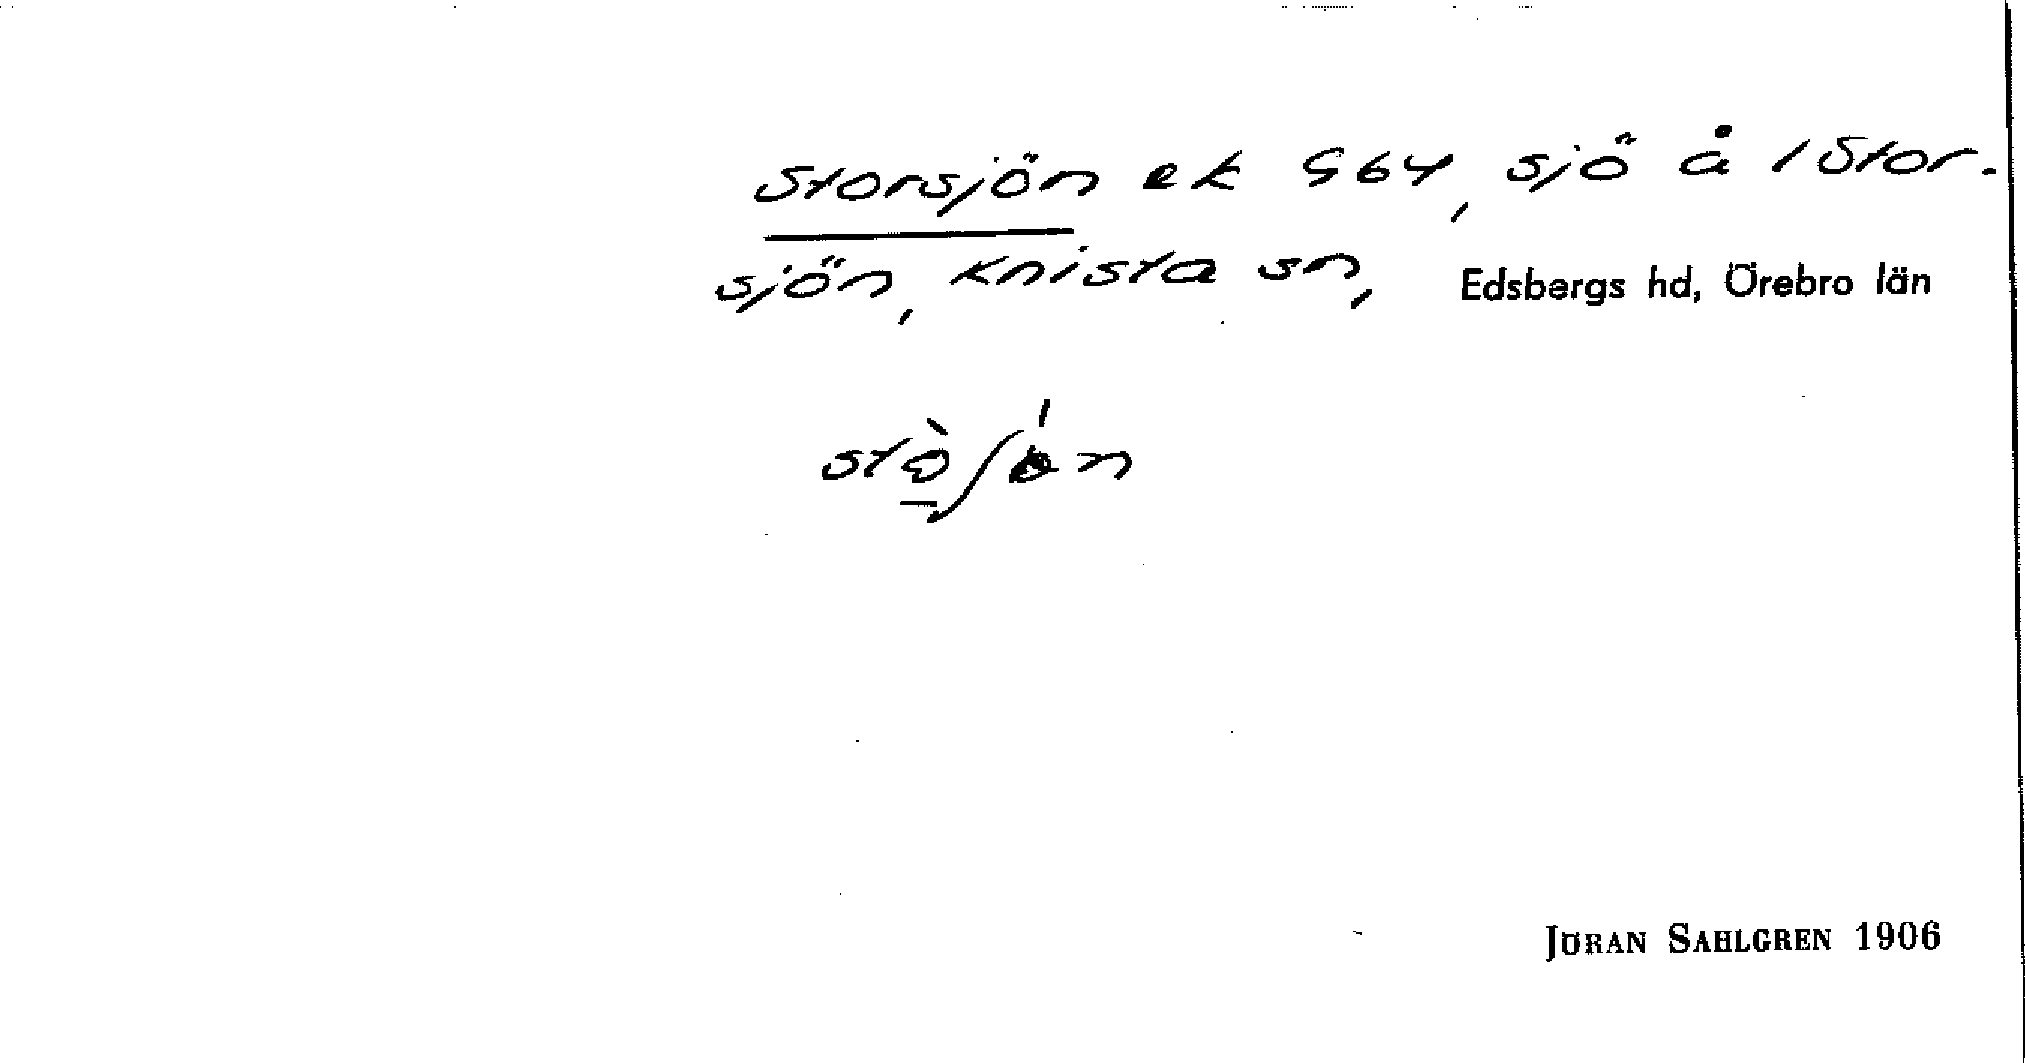 Storsjön ek 964, sjö å 1 Stor-
sjön, Knista sn, Edsbergs hd, Örebro län
JÖRAN SAHLGREN 1906